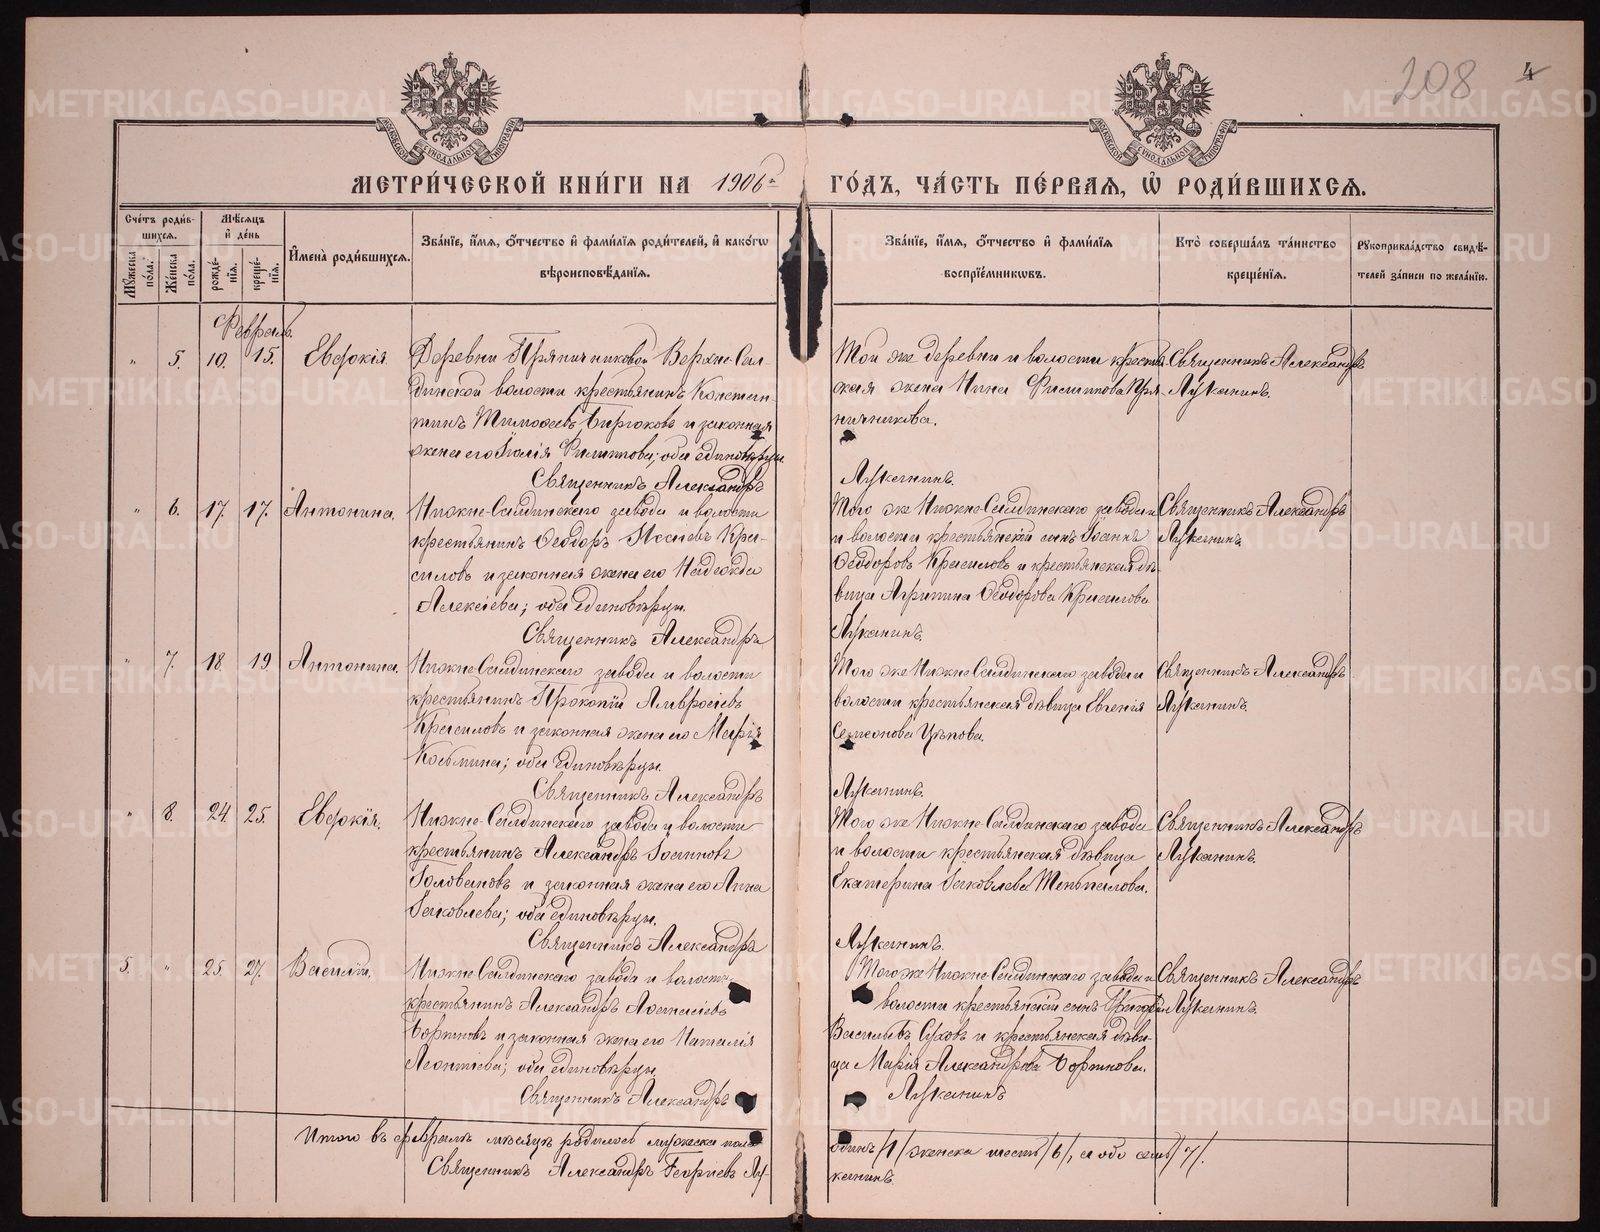 208 4
МЕТРИ́ЧЕСКОЙ КНИ́ГИ НА 1906й ГО́ДЪ, ЧА́СТЬ ПЕ́РВАЯ, Ѡ РОДИ́ВШИХСЯ.
Сче́тъ роди́вшихся.
Му́жеска по́ла.
Же́нска по́ла.
Мѣ́сяцъ и де́нь
рожде́нія.
креще́нія.
И́мена роди́вшихся.
Зва́ніе, и́мя, о́тчество и фами́лія роди́телей, и како́гѡ
вѣроисповѣ́данія.
Зва́ніе, и́мя, о́тчество и фами́лія
воспріе́мникѡвъ.
Кто̀ соверша́лъ та́инство
креще́нія.
Рꙋкоприкла́дство свидѣ́-
телей за́писи по жела́нію.
Февраль.
" 5. 10. 15. Евдокія
Деревни Пряничниковой Верхне-Сал-
динской волости крестьянинъ Констан-
тинъ Тимоѳеевъ Бирюковъ и законная
жена его Юлія Филиппова; оба единовѣрцы
Священникъ Александръ Луканинъ.
Той же деревни и волости крестьян-
ская жена Нина Филиппова Пря-
ничникова.
Священникъ Александръ
Луканинъ.
" 6. 17. 17. Антонина.
Нижне-Салдинскаго завода и волости
крестьянинъ Ѳеодоръ Исаіевъ Кра-
силовъ и законная жена его Надежда
Алексіева; оба единовѣрцы.
Священникъ Александръ Луканинъ.
Того же Нижне-Салдинскаго завода и
и волости крестьянскій сынъ Іоаннъ
Ѳеодоровъ Красиловъ и крестьянская дѣ-
вица Агрипина Ѳеодорова Красилова
Священникъ Александръ
Луканинъ.
" 7. 18. 19 Антонина.
Нижне-Салдинскаго завода и волости
крестьянинъ Прокопій Амвросіевъ
Красиловъ и законная жена его Марія
Косьмина; оба единовѣрцы.
Священникъ Александръ Луканинъ.
Того же Нижне-Салдинскаго завода и
волости крестьянская дѣвица Евгенія
Симеонова Цѣпова.
Священникъ Александръ
Луканинъ.
" 8. 24. 25. Евдокія.
Нижне-Салдинскаго завода и волости
крестьянинъ Александръ Іоанновъ
Головановъ и законная жена его Анна
Іаковлева; оба единовѣрцы.
Священникъ Александръ Луканинъ.
Того же Нижне-Салдинскаго завода
и волости крестьянская дѣвица
Екатерина Іаковлева
Священникъ Александръ
Луканинъ.
5. " 25. 27. Василій.
Нижне-Салдинскаго завода и волости
крестьянинъ Александръ Аѳанасіевъ
Бортновъ и законная жена его Наталія
Леонтіева; оба единовѣрцы.
Священникъ Александръ Луканинъ
Того же Нижне-Салдинскаго завода и
волости крестьянскій сынъ Григорій
Васильевъ Суховъ и крестьянская дѣви-
ца Марія Александрова Бортнова.
Священникъ Александръ
Луканинъ.
Итого въ февралѣ мѣсяцѣ родилось мужеска пола одинъ /1/ женска шесть /6/, а обо семь /7/.
Священникъ Александръ Георгіевъ Лу-
канинъ.
METRIKI.GASO-URAL.RU